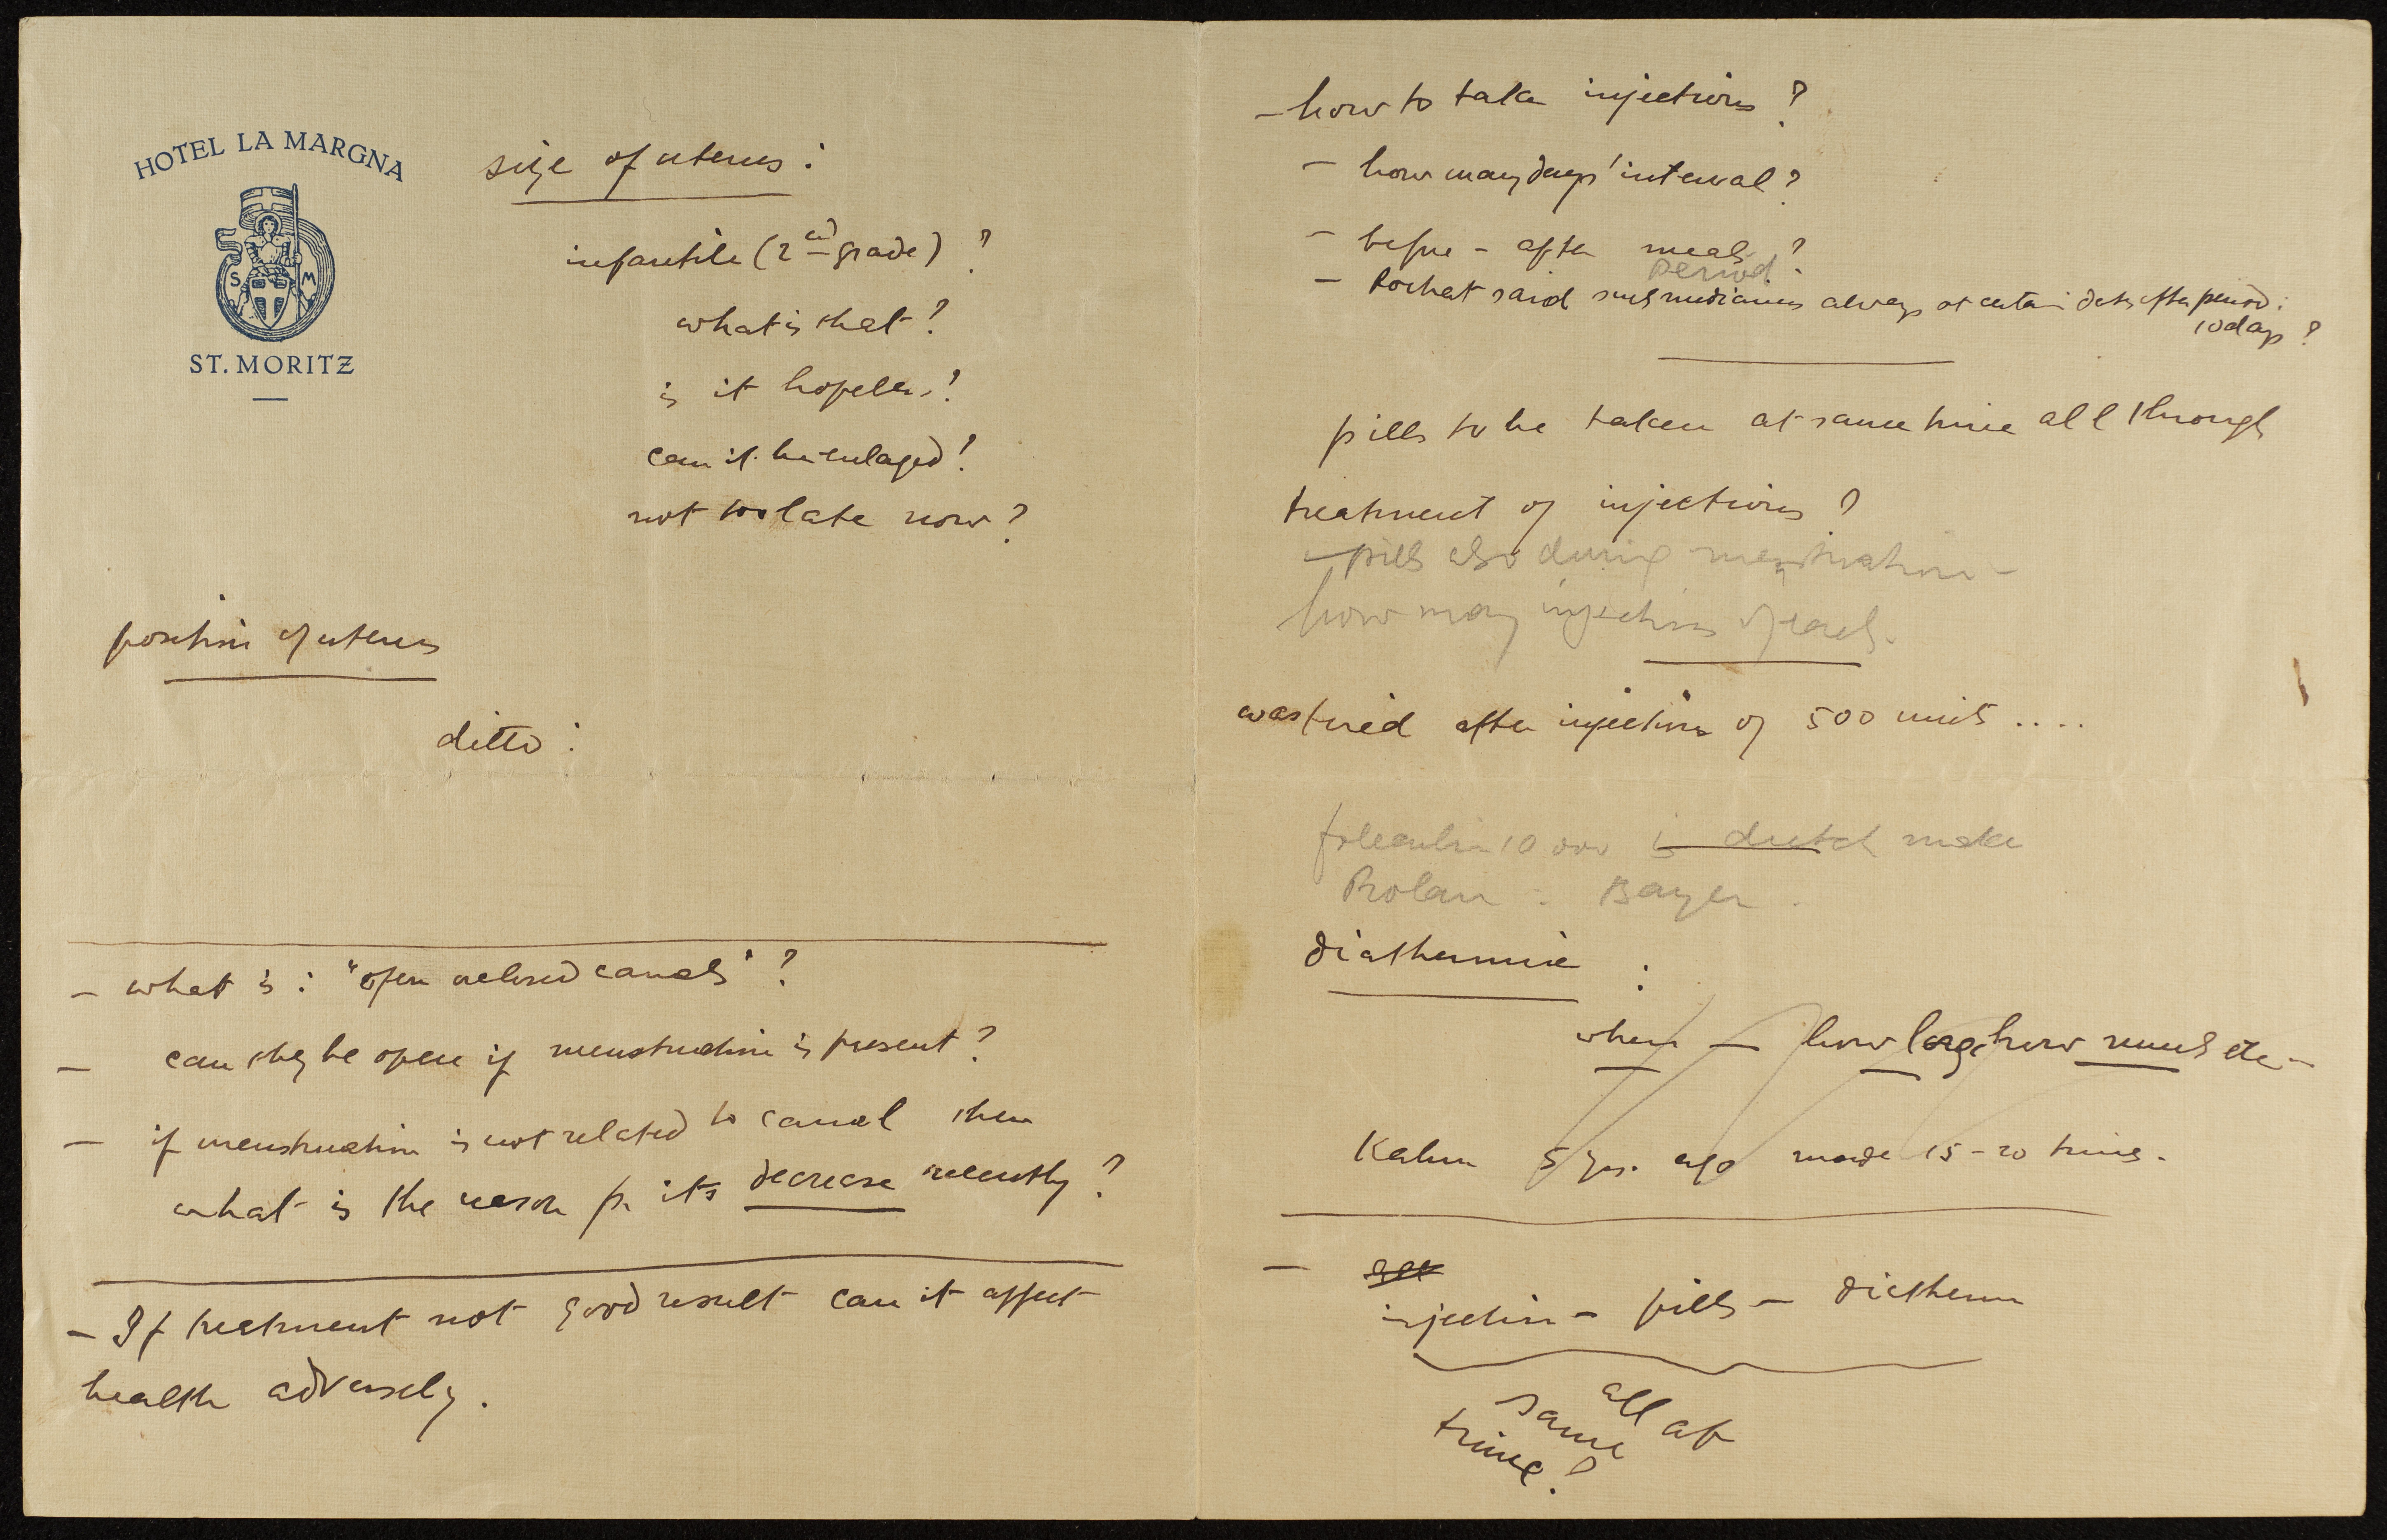 HOTEL LA MARGNA
S M
ST. MORITZ
size of uterus :
infantile (2nd grade) ?
what is that ?
is it hopeless ?
can it be enlarged ?
not too late now ?
position of uterus
ditto :
- what is : "open or closed canals" ?
- can they be open if menstruation is present ?
- if menstruation is not related to canal then
what is the reason for its decrease recently ?
- If treatment not good result can it affect
health adversely .
- how to take injections ?
- how many days' interval ?
- before - after meals ?
period
- Rochat said such medicines always at certain date after period :
10 days ?
pills to be taken at same time all through
treatment of injections ?
- pills also during menstruation -
how many injections of each .
was tired after injections of 500 units ....
foliculin 10 000 is dutch make
Prolan . Bayer .
diathermie :
when - how long how much etc -
Kahn 5 yrs. ago made 15 - 20 times .
-
injection - pills - diatherm
all at
same
time ?